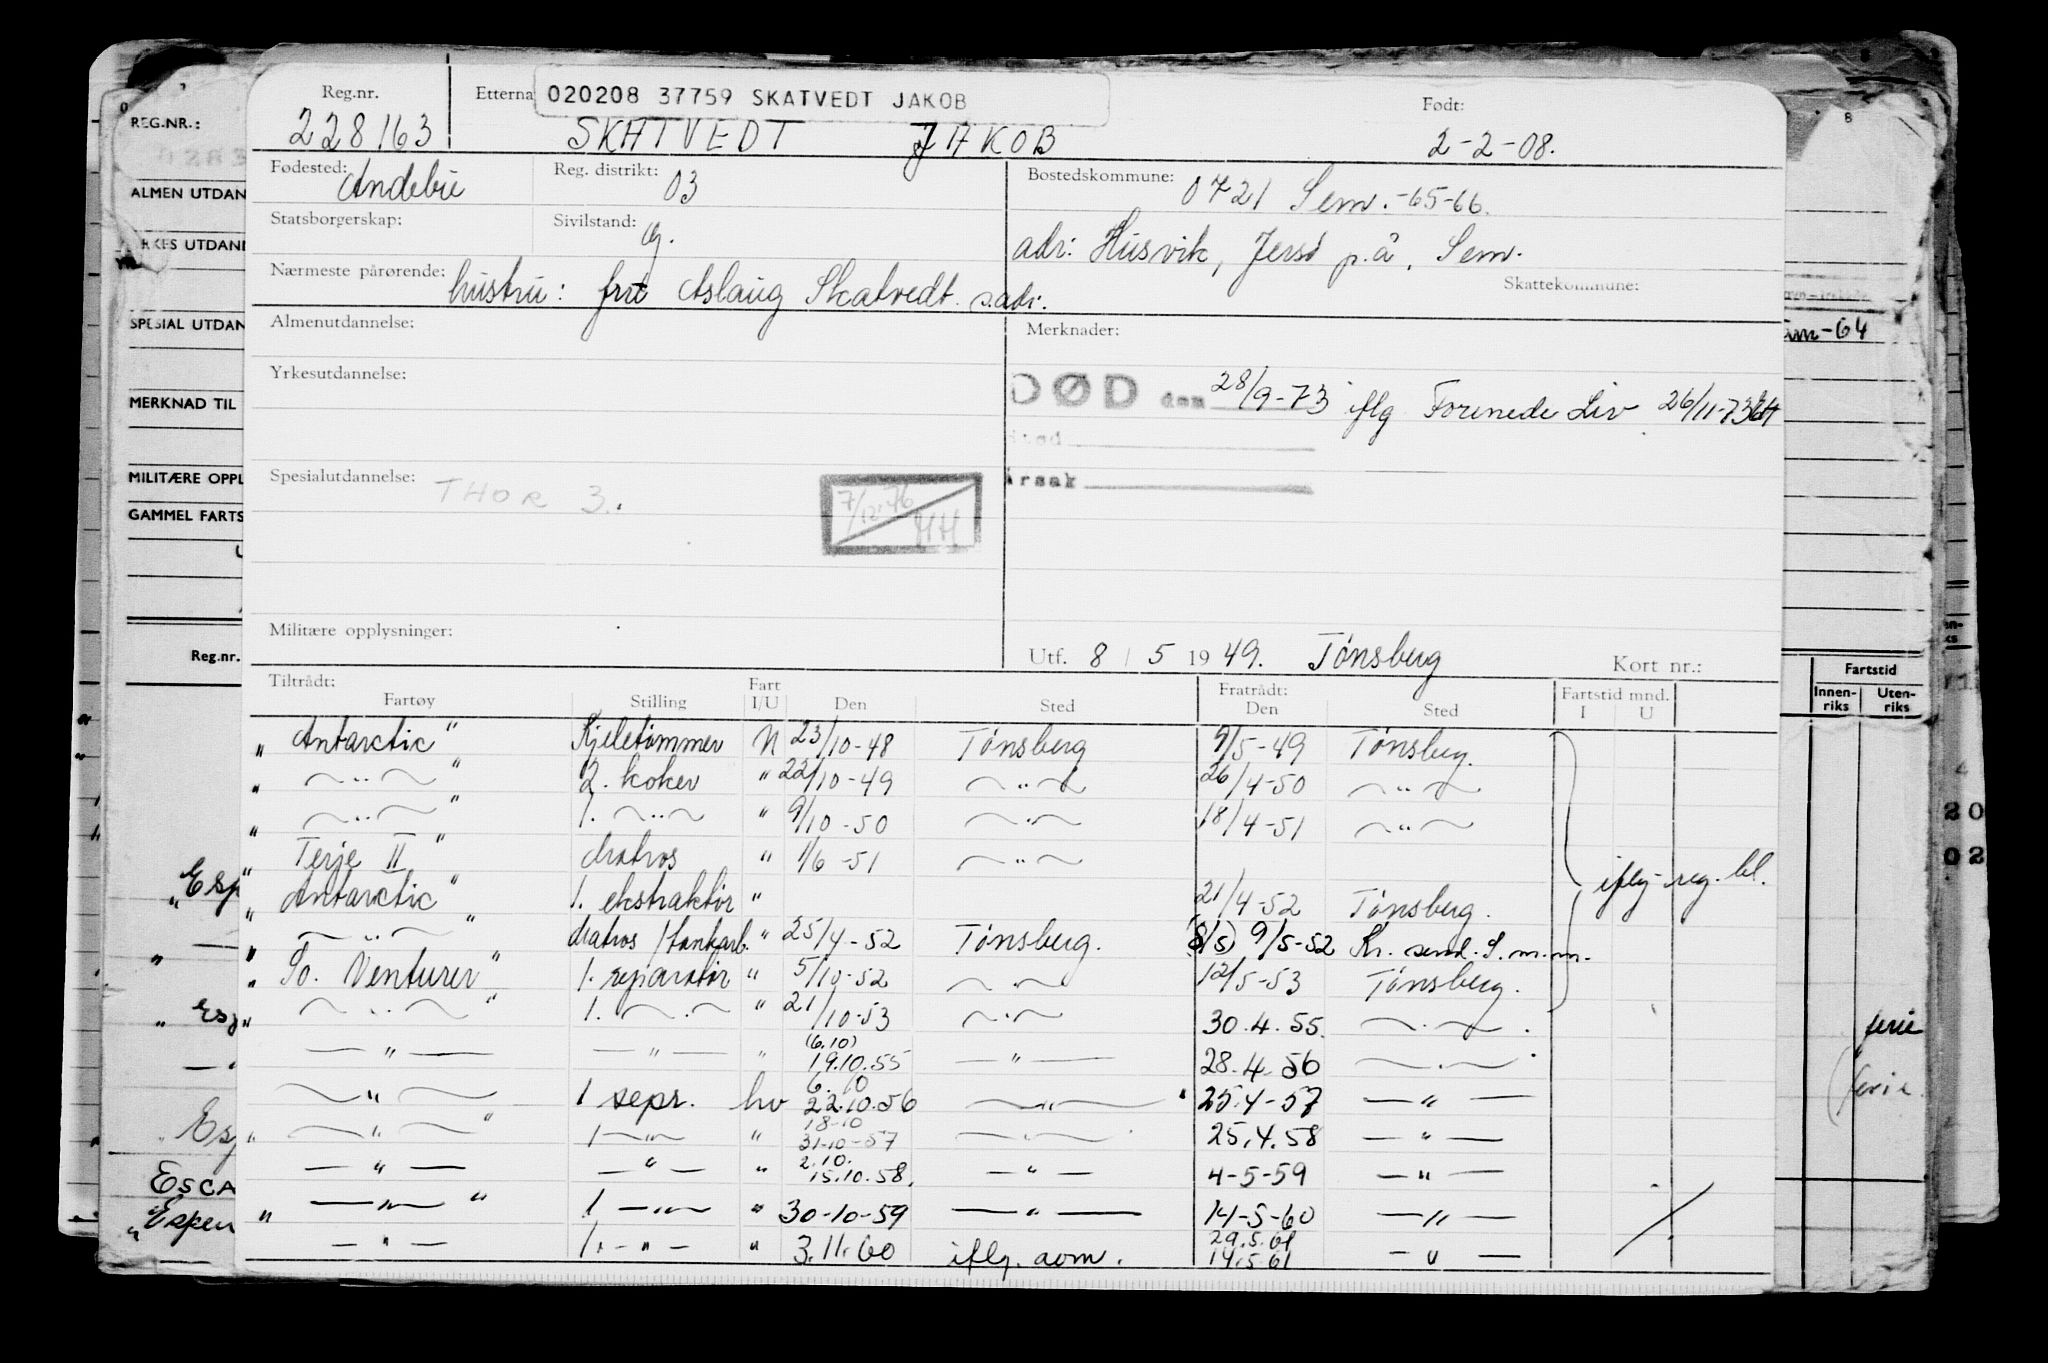 Reg.nr. Etterna 020208 37759 SKATVEDT JAKOB Født:
228163 SKATVEDT JAKOB 2-2-08.
Fødested: Andebu Reg. distrikt: 03 Bostedskommune: 0721 Sem.-65-66.
Statsborgerskap: Sivilstand: g. adr: Husvik, Jersø p.å, Sem.
Nærmeste pårørende: hustru: fru Aslaug Skatvedt s.adr. Skattekommune:
Almenutdannelse: Merknader:
Yrkesutdannelse: DØD den 28/9-73 iflg Forenede Liv 26/11-73
Sted
Spesialutdannelse: THOR 3. 7/12-76 HH Årsak
Militære opplysninger: Utf. 8 / 5 1949. Tønsberg Kort nr.:
Tiltrådt: Fart Fratrådt: Fartstid mnd.
Fartøy Stilling I/U Den Sted Den Sted I U
" Antarctic " Kjeletømmer N 23/10-48 Tønsberg 9/5-49 Tønsberg.
" —"— " 2. koker " 22/10-49 —"— 26/4-50 —"—
" —"— " 1. —"— " 9/10-50 —"— 18/4-51 —"—
" Terje II " Matros " 1/6-51 —"— iflg. reg. bl.
" Antarctic " 1. ekstraktør " 21/4-52 Tønsberg.
" —"— " Matros / tankarb. " 25/4-52 Tønsberg. (8/5) 9/5-52 Kr. sand. S. m.m.
" So. Venturer " 1. separatør " 5/10-52 —"— 12/5-53 Tønsberg.
" —"— " 1. —"— " 21/10-53 —"— 30.4.55. —"—
—"— —"— " (6.10) 19.10.55 —"— 28.4.56 —"—
—"— 1 sepr. hv 6.10 22.10.56 —"— 25.4-57 —"—
" —"— " 1 —"— " 18-10 31-10-57 —"— 25.4.58 —"—
—"— —"— " 2.10. 15.10.58. —"— 4-5-59 —"—
" —"— " 1 —"— " 30-10-59 —"— 14-5-60 —"—
—"— 1. —"— " 3.11.60 iflg. aom. 29.5.61 14.5.61 —"—
REG.NR.:
ALMEN UTDAN
RKES UTDAN
SPESIAL UTDAN
MERKNAD TIL
MILITÆRE OPPL
GAMMEL FARTS
Reg.nr.
" Esp
" Esp
Esp
ESCA
" Espen
-64
Fartstid
Innen-riks Uten-riks
ferie
(ferie
20
02